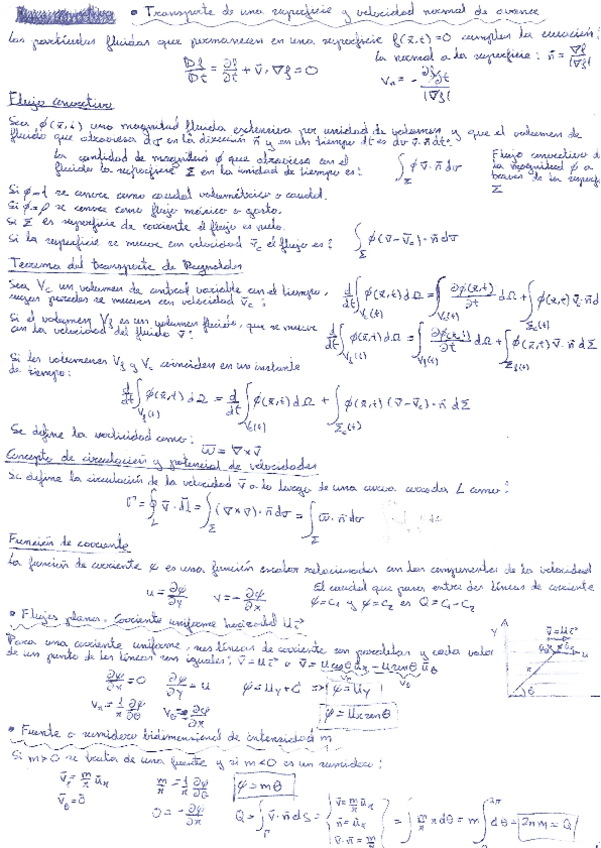 • Transporte de una superficie y velocidad normal de avance
Las partículas fluidas que permanecen en una superficie f(x̄,t)=0 cumplen la ecuación:
Df/Dt = ∂f/∂t + v̄·∇f = 0
la normal a la superficie: n̄ = ∇f/|∇f|
Vn = - (∂f/∂t)/|∇f|
Flujo convectivo
Sea φ(x̄,t) una magnitud fluida extensiva por unidad de volumen y que el volumen de
fluido que atraviesa dσ en la dirección n̄ y en un tiempo dt es dσ v̄·n̄dt.
la cantidad de magnitud φ que atraviesa con el
fluido la superficie Σ en la unidad de tiempo es: ∫_Σ φ v̄·n̄ dσ
Flujo convectivo
la magnitud φ a
través de la
Σ
Si φ=1 se conoce como caudal volumétrico o caudal.
Si φ=ρ se conoce como flujo másico o gasto.
Si Σ es superficie de corriente el flujo es nulo.
Si la superficie se mueve con velocidad v̄c el flujo es: ∫_Σ φ(v̄-v̄c)·n̄ dσ
Teorema del transporte de Reynolds
Sea Vc un volumen de control variable con el tiempo,
cuyas paredes se mueven con velocidad v̄c:
d/dt ∫_Vc(t) φ(x̄,t) dΩ = ∫_Vc(t) ∂φ(x̄,t)/∂t dΩ + ∫_Σc(t) φ(x̄,t) v̄c·n̄ d
Si el volumen Vf es un volumen fluido, que se mueve
con la velocidad del fluido v̄:
d/dt ∫_Vf(t) φ(x̄,t) dΩ = ∫_Vf(t) ∂φ(x̄,t)/∂t dΩ + ∫_Σf(t) φ(x̄,t) v̄·n̄ dΣ
Si los volumenes Vf y Vc coinciden en un instante
de tiempo:
d/dt ∫_Vf(t) φ(x̄,t) dΩ = d/dt ∫_Vc(t) φ(x̄,t) dΩ + ∫_Σc(t) φ(x̄,t) (v̄-v̄c)·n̄ dΣ
Se define la vorticidad como: ω̄ = ∇×v̄
Concepto de circulación y potencial de velocidades
Se define la circulación de la velocidad v̄ a lo largo de una curva cerrada L como:
Γ = ∮_L v̄·dl̄ = ∫_Σ (∇×v̄)·n̄ dσ = ∫_Σ ω̄·n̄ dσ
Función de corriente
La función de corriente ψ es una función escalar relacionada con las componentes de la velocidad
u = ∂ψ/∂y v = -∂ψ/∂x
El caudal que pasa entre dos líneas de corriente
ψ=C1 y ψ=C2 es Q=C1-C2
• Flujos planos. Corriente uniforme horizontal U ī
Para una corriente uniforme, sus líneas de corriente son paralelas y cada valor
de un punto de las líneas son iguales: v̄ = U ī o v̄ = U cosθ ūr - U senθ ūθ
Vr Vθ
∂ψ/∂x = 0 ∂ψ/∂y = U ψ = Uy + C ⇒ ψ = Uy
Vr = 1/r ∂ψ/∂θ Vθ = -∂ψ/∂r
ψ = U r senθ
Y
A
v̄ = U ī
r
θ
• Fuente o sumidero bidimensional de intensidad m
Si m>0 se trata de una fuente y si m<0 es un sumidero:
v̄r = m/r ūr m/r = 1/r ∂ψ/∂θ ψ = mθ
v̄θ = 0 0 = -∂ψ/∂r
Q = ∫_Γ v̄·n̄ dS = { v̄ = m/r ūr, n̄ = ūr, v̄·n̄ = m/r } = ∫ m/r r dθ = m ∫^2π dθ = 2πm = Q